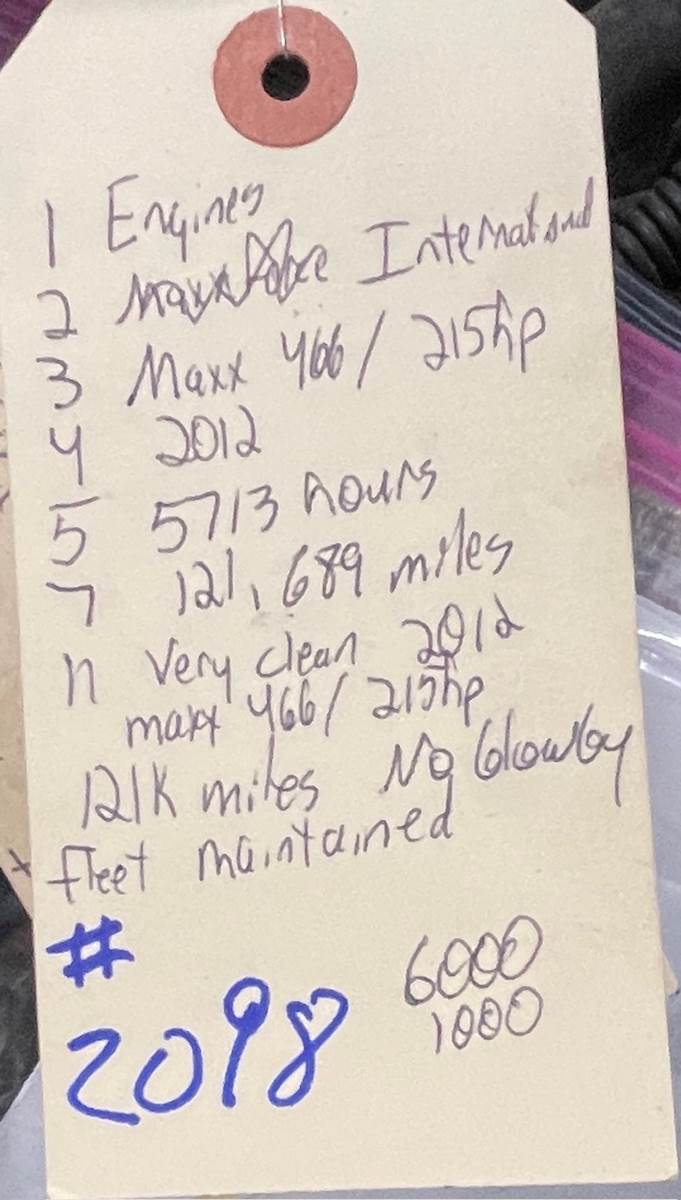 1 Engines
2 Maxxforce International
3 Maxx 466/215hp
4 2012
5 5713 hours
7 121,689 miles
11 Very clean 2012
maxx 466/215hp
121K miles No blowby
fleet maintained
#
2098
6000
1000